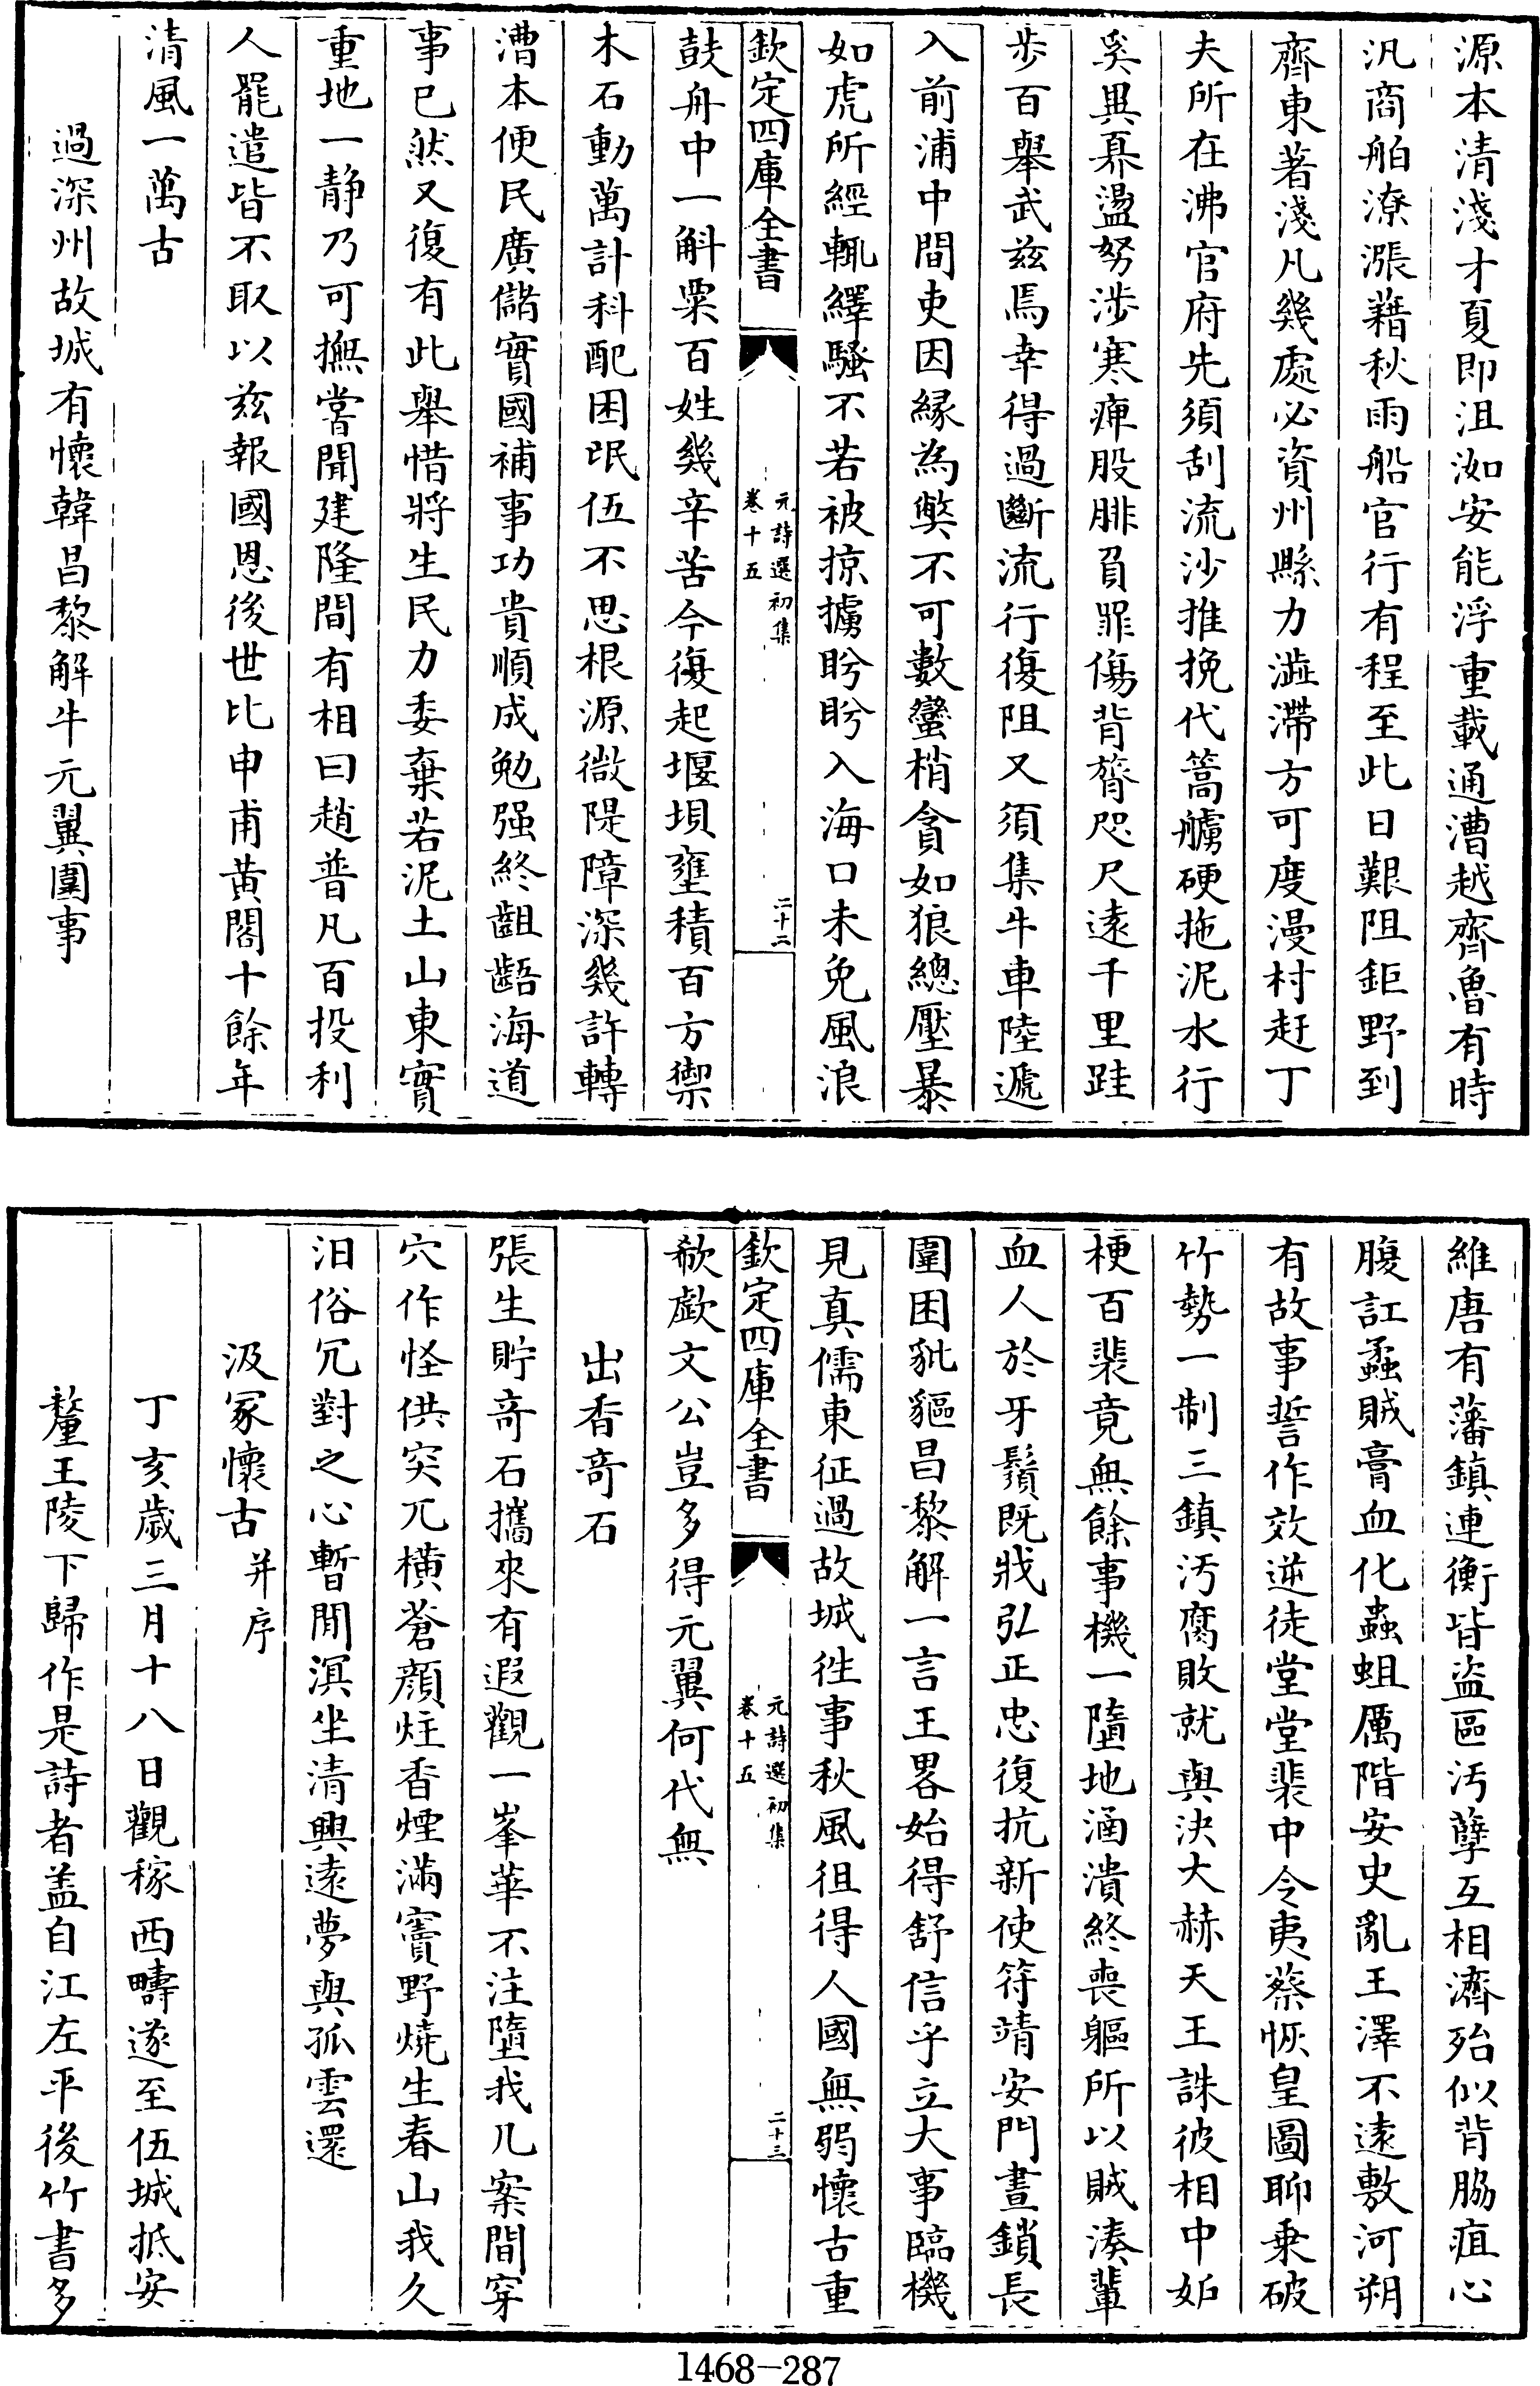 源本清淺才夏即沮洳安能浮重載通漕越齊魯有時
汎商舶潦漲藉秋雨船官行有程至此日艱阻鉅野到
齊東著淺凡幾處必資州縣力澁滯方可度漫村赶丁
夫所在沸官府先須刮流沙推挽代篙艣硬拖泥水行
奚異奡盪努涉寒痺股腓負罪傷背膂咫尺遠千里跬
步百舉武兹焉幸得過斷流行復阻又須集牛車陸遞
入前浦中間吏因緣為弊不可數蠻梢貪如狼總壓暴
如虎所經輒繹騷不若被掠擄盻盻入海口未免風浪
欽定四庫全書
元詩選初集
卷十五
二十二
鼓舟中一斛粟百姓幾辛苦今復起堰埧壅積百方禦
木石動萬計科配困氓伍不思根源微隄障深幾許轉
漕本便民廣儲實國補事功貴順成勉强終齟齬海道
事已然又復有此舉惜將生民力委棄若泥土山東實
重地一靜乃可撫嘗聞建隆間有相曰趙普凡百投利
人罷遣皆不取以兹報國恩後世比申甫黄閣十餘年
清風一萬古
過深州故城有懷韓昌黎解牛元翼圍事
維唐有藩鎮連衡皆盜區汚孽互相濟殆似背脇疽心
腹訌蟊賊膏血化蟲蛆厲階安史亂王澤不遠敷河朔
有故事誓作效逆徒堂堂裴中令夷蔡恢皇圖聊乗破
竹勢一制三鎮汚腐敗就與決大赫天王誅彼相中妬
梗百裴竟無餘事機一墮地涵潰終喪軀所以賊湊輩
血人於牙鬚既戕弘正忠復抗新使符靖安門晝鎖長
圍困貔貙昌黎解一言王畧始得舒信乎立大事臨機
見真儒東征過故城徃事秋風徂得人國無弱懷古重
欽定四庫全書
元詩選初集
卷十五
二十三
欷歔文公豈多得元翼何代無
出香竒石
張生貯竒石攜來有遐觀一峯華不注墮我几案間穿
穴作怪供突兀横蒼顔炷香煙滿竇野燒生春山我久
汩俗冗對之心暫閒溟坐清興遠夢與孤雲還
汲冢懷古并序
丁亥歲三月十八日觀稼西疇遂至伍城抵安
釐王陵下歸作是詩者盖自江左平後竹書多
1468-287